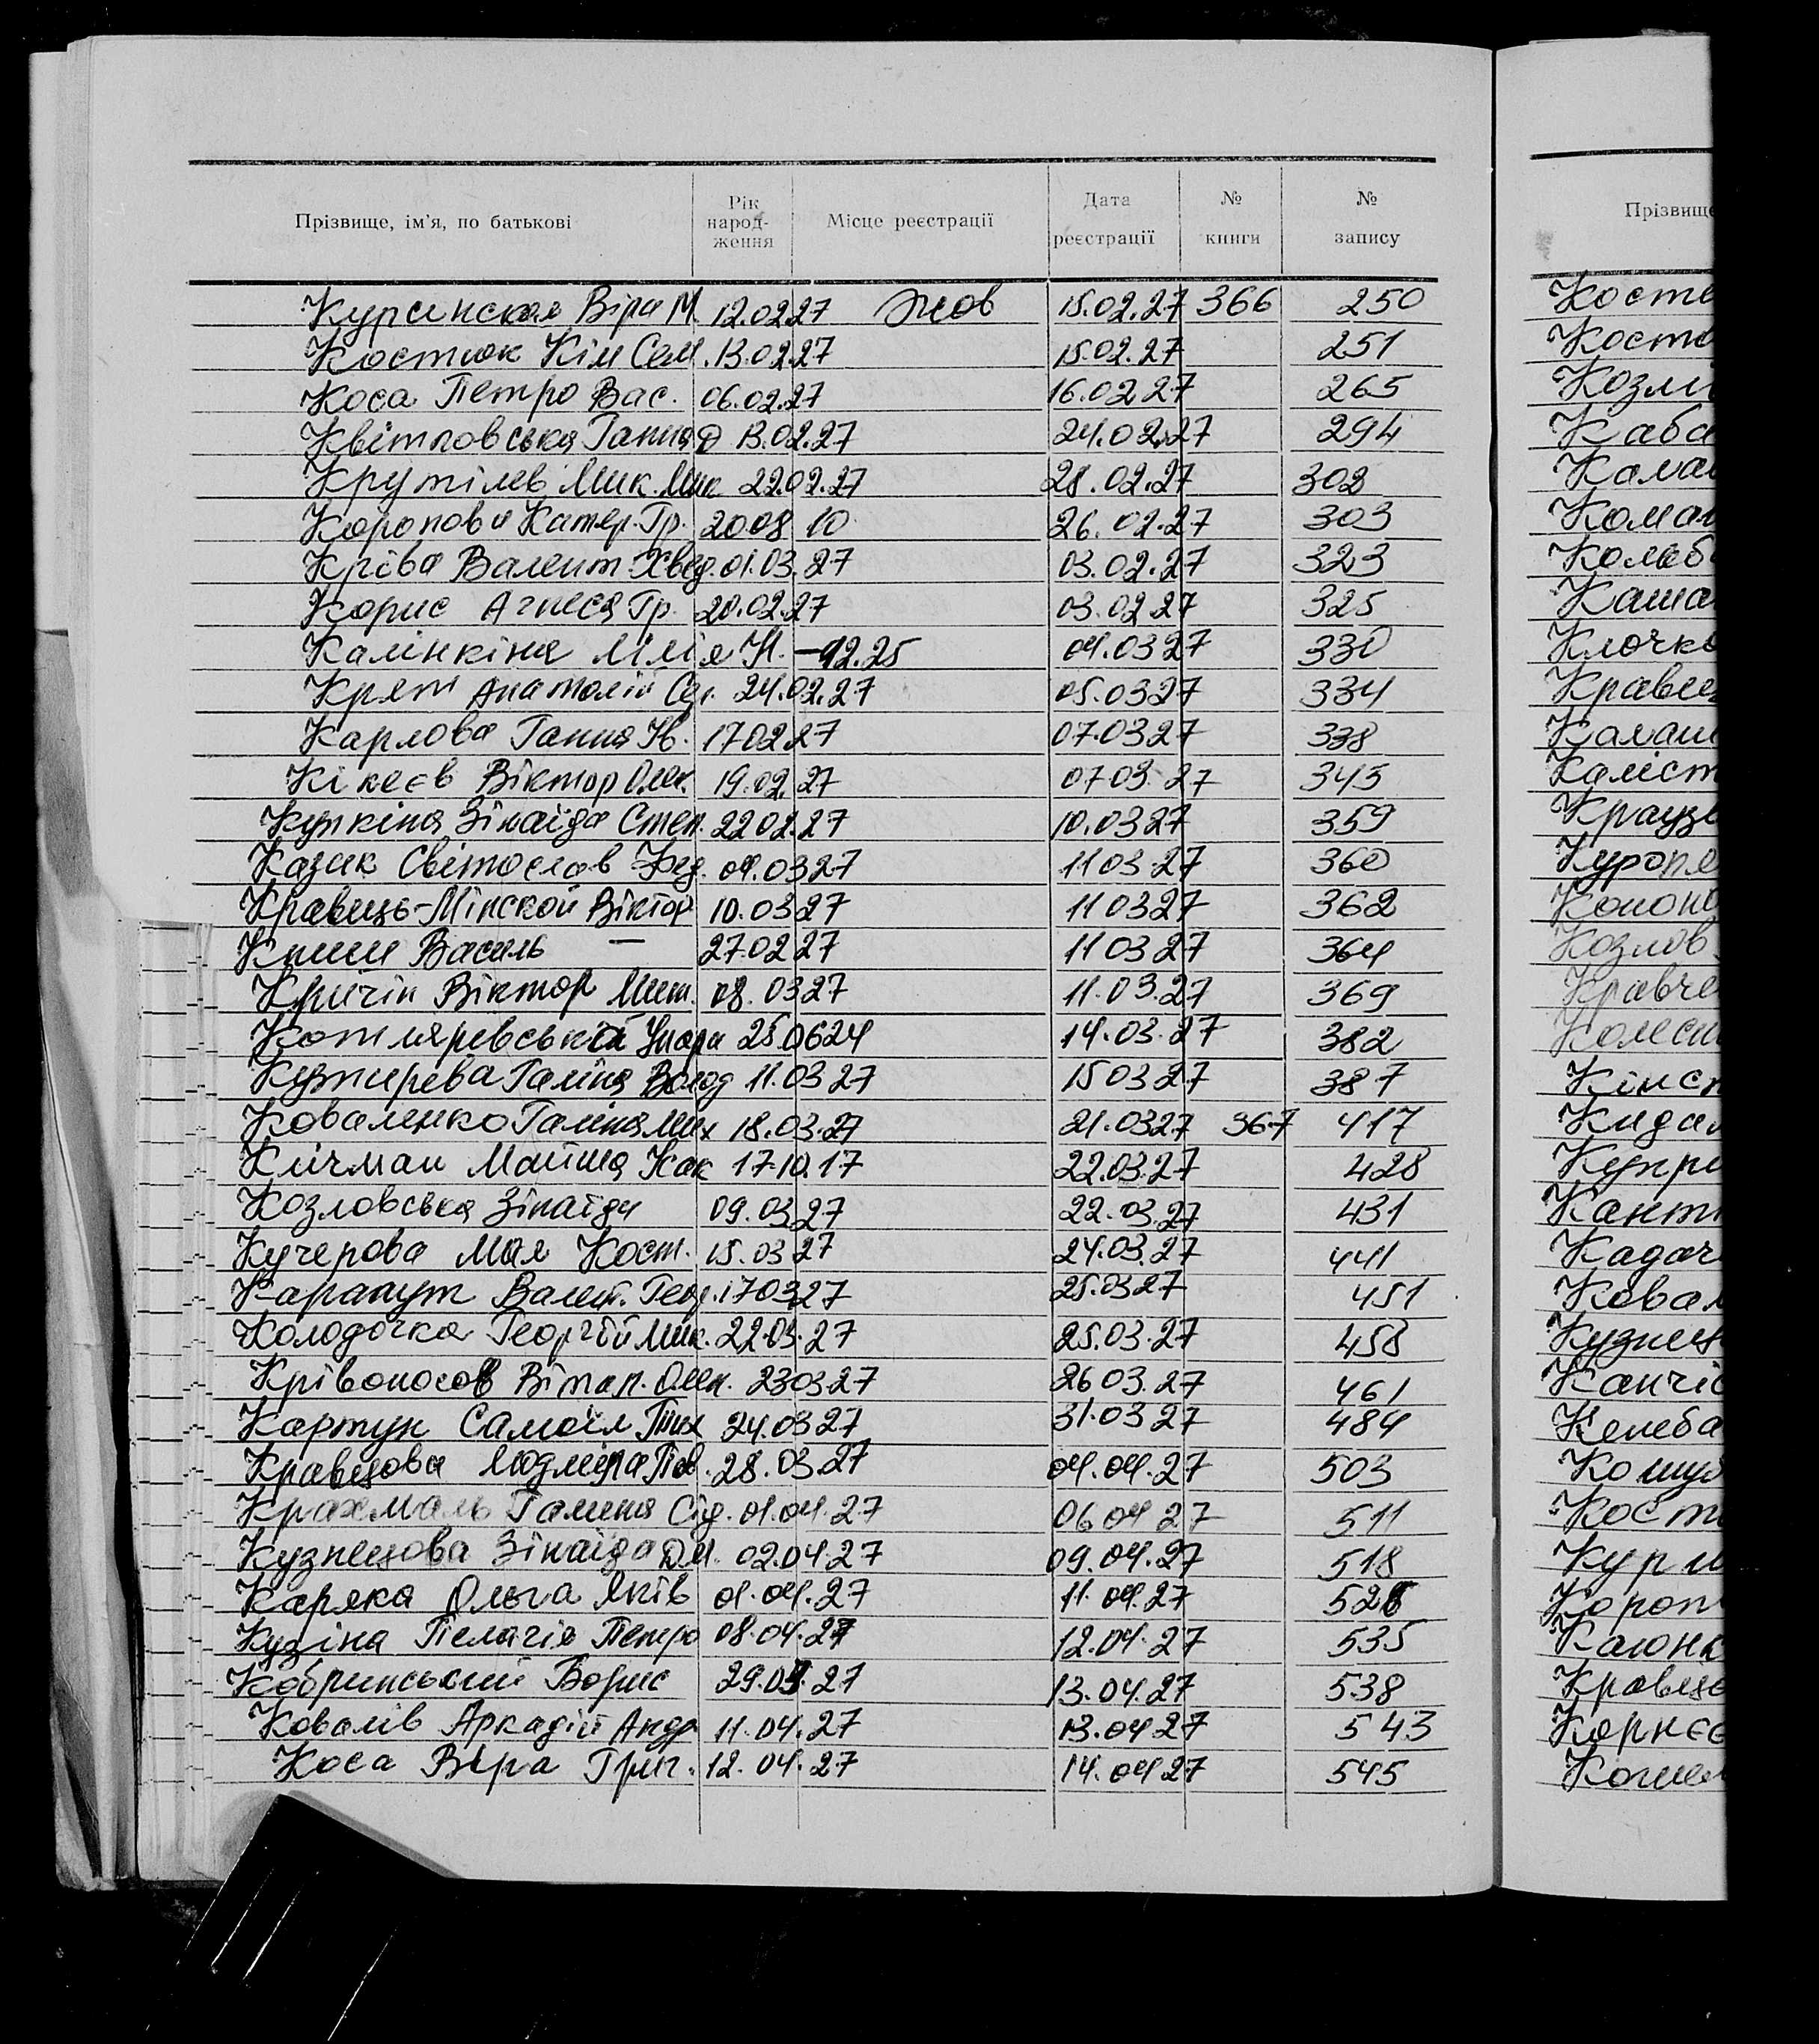 Прізвище, ім'я, по батькові Рік народ-ження Місце реєстрації Дата реєстрації № книги № запису
Курсинская Віра М. 12.02.27 Жов 15.02.27 366 250
Костюк Кім Сем. 13.02.27 15.02.27 251
Коса Петро Вас. 06.02.27 16.02 27 265
Квітковська Ганна Ф 13.02.27 24.02.27 294
Крутілев Мик. Мик 22.02.27 28.02.27 302
Коропова Катер. Гр. 20.08 10 26.02.27 303
Кріва Валент. Хвед. 01.03.27 03.02.27 323
Корис Агнеса Гр. 20.02.27 03.02 27 325
Калінкіна Лілія Н. –12.25 04.03 27 330
Крят Анатолій 24.02.27 05.03 27 334
Карлова Ганна Ів. 17 02.27 07.03 27 338
Кікеєв Віктор Олек. 19.02.27 07 03. 27 345
Купкіна Зінаїда Степ. 22 02.27 10.03 27 359
Казак Світослав Фед. 04.03 27 11 03 27 360
Кравець-Мінской Віктор 10.03 27 11 03 27 362
Книш Василь — 27.02 27 11 03 27 364
Крічін Віктор Мит. 08.03 27 11.03.27 369
Котляревський 25.06 24 14.03.27 382
Галіна Волод 11.03 27 15 03 27 387
Коваленко Галіна Мих 18.03.27 21.03 27 367 417
Клічман 17.10.17 22.03.27 428
Козловська Зінаїда 09.03 27 22.03.27 431
Кучерова Мая Кост. 15.03 27 24.03.27 441
Карапут Валент. Геор. 17 03 27 25.03 27 451
Колодочка Георгій Мик. 22.03.27 25.03.27 458
Крівоносов Вітал. Олек. 23 03 27 26 03.27 461
Картун Самоїл 24.03 27 31.03 27 484
Кравцова Людміла Пав. 28.03.27 04.04.27 503
Крахмаль Галина Сід. 01.04.27 06 04 27 511
Кузнецова Зінаїда Дм. 02.04.27 09.04.27 518
Каряка Ольга Яків 01.04.27 11.04.27 526
Кузіна Пелагія Петро 08.04.27 12.04.27 535
Кобринський Борис 29.03.27 13.04.27 538
Ковалів Аркадій Андр 11.04.27 13.04 27 543
Коса Віра Григ. 12.04.27 14.04 27 545
Прізвище
Косте
Косто
Козлі
Каба
Кама
Кома
Колеб
Каша
Клочко
Кравец
Калаш
Каліст
Краузе
Куропя
Конона
Козлов
Кравче
Колесн
Кінс
Кидал
Купри
Кант
Кадач
Ковал
Кузнец
Канчіс
Келеба
Кошуб
Кост
Курі
Короп
Каюк
Кравцо
Корнєє
Кошел